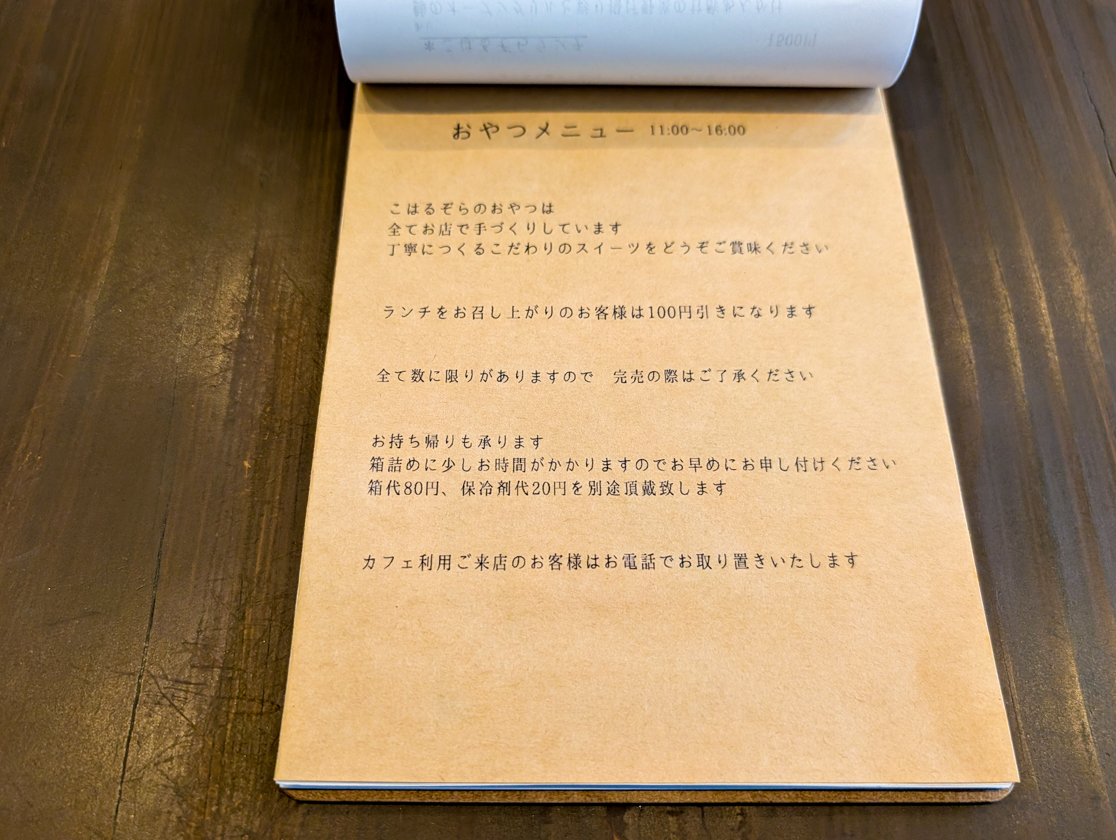 おやつメニュー 11:00～16:00
こはるぞらのおやつは
全てお店で手づくりしています
丁寧につくるこだわりのスイーツをどうぞご賞味ください
ランチをお召し上がりのお客様は100円引きになります
全て数に限りがありますので　完売の際はご了承ください
お持ち帰りも承ります
箱詰めに少しお時間がかかりますのでお早めにお申し付けください
箱代80円、保冷剤代20円を別途頂戴致します
カフェ利用ご来店のお客様はお電話でお取り置きいたします